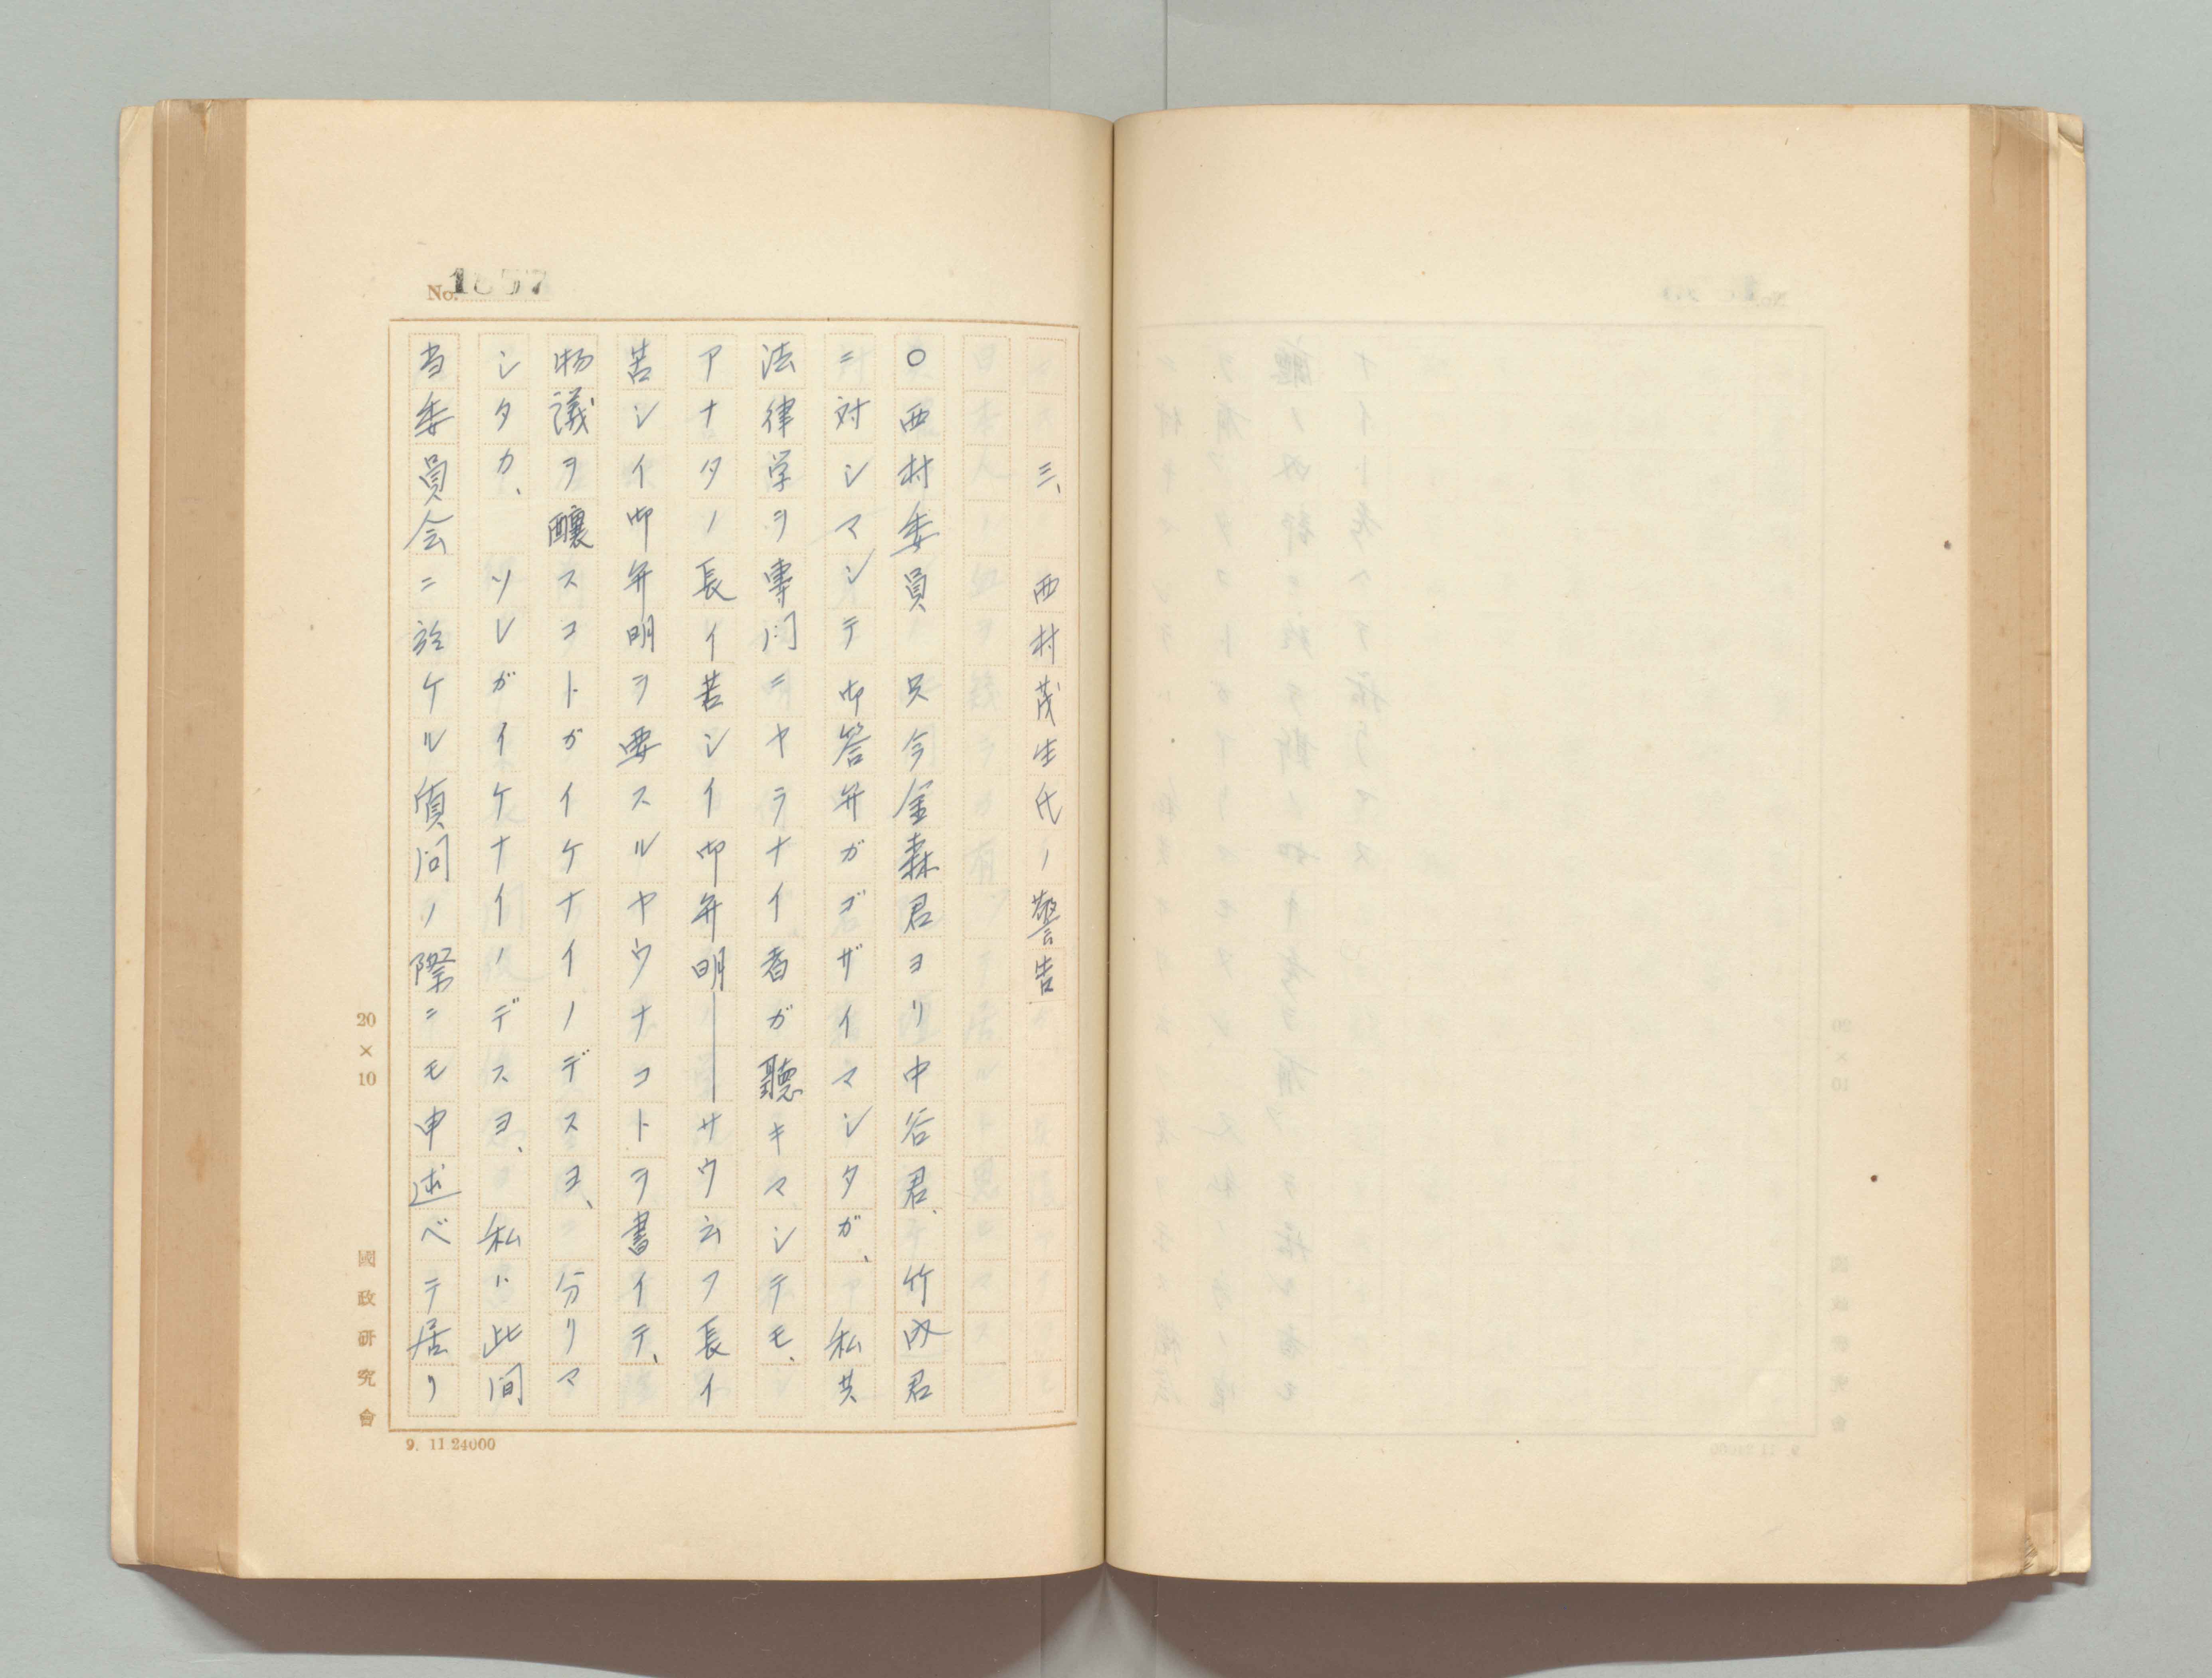 No. 1857
三、 西村茂生氏ノ警告
○西村委員 只今金森君ヨリ中谷君、竹内君
ニ対シマシテ御答弁ガゴザイマシタガ、私共
法律学ヲ専門ニヤラナイ者ガ聽キマシテモ、
アナタノ長イ苦シイ御弁明――サウ云フ長イ
苦シイ御弁明ヲ要スルヤウナコトヲ書イテ、
物議ヲ釀スコトガイケナイノデスヨ、分リマ
シタカ、ソレガイケナイノデスヨ、私ハ此間
当委員会ニ於ケル質問ノ際ニモ申述ベテ居リ
20×10
國政研究會
9. 11 24000